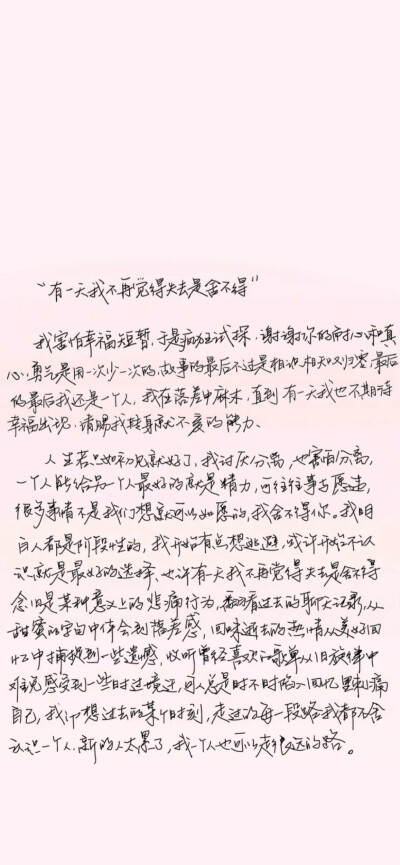 “有一天我不再觉得失去是舍不得”
我害怕幸福短暂，于是疯狂试探，谢谢你的耐心和真
心，勇气是用一次少一次的，故事的最后不过是相识相知又归零，最后
的最后我还是一个人，我在落差中麻木，直到有一天我也不期待
幸福出现，请赐我转身就不爱的能力、
人生若只如初见就好了，我讨厌分离，也害怕分离，
一个人能给另一个人最好的就是精力，可往往事与愿违，
很多事情不是我们想就可以如愿的，我舍不得你。我明
白人都是阶段性的，我开始有点想逃避，或许开始不认
识就是最好的选择，也许有一天我不再觉得失去是舍不得
念旧是某种意义上的悲痛行为，翻看过去的聊天记录，从
甜蜜的字句中体会到落差感，回味逝去的热情从美好回
忆中捕捉到一些遗憾，收听曾经喜欢的歌单从旧旋律中
难免感受到一些时过境迁，可人总是时不时陷入回忆里刺痛
自己，我也想过去的某个时刻，走过的每一段路我都不舍
认识一个人，新的人太累了，我一个人也可以走很远的路。